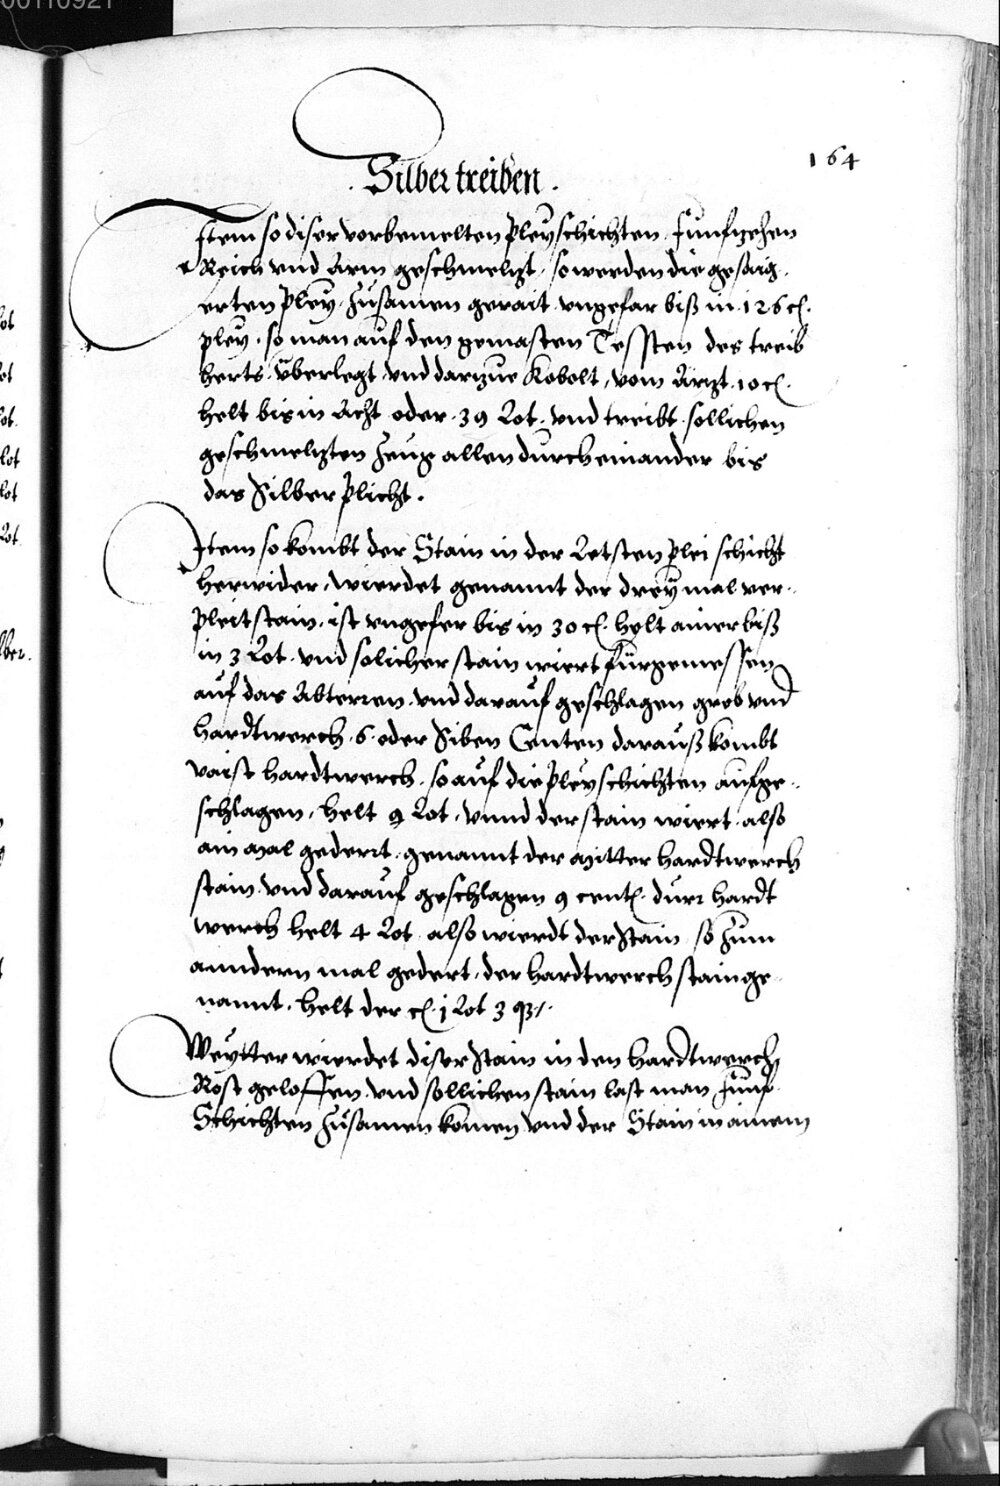 00110921
164
. Silber treiben .
Item so diser vorbemelten Pleyschichten funfzehen
Reich vnd Arm geschmeltzt, so werden die gesaig-
erten Pley zusamen gerait vngefar biß in 126 cl.
pley, so man auf den gemasten Tessten des treib
herts vberlegt vnd darzue Kobolt, vom Ärtzt 10 cl.
helt bis in Acht oder 39 Lot, vnd treibt sollichen
geschmeltzten Zeug allen durcheinander bis
das Silber Plickt.
Item so kombt der Stain in der Letsten Plei schicht
herwider, wierdet genannt der dreymal ver-
Pleit stain, ist vngefer bis in 30 cl. helt ainer biß
in 3 Lot. vnd solicher stain wiert fürgemessen
auf das Abterren, vnd darauf geschlagen grob vnd
hardtwerch 6 oder Siben Centen darauß kombt
vaist hardtwerch, so auf die Pleyschichten aufge-
schlagen, helt 9 Lot, vnnd der stain wiert also
ain mal gederrt, genannt der mitter hardtwerch
stain vnd darauf geschlagen 9 centl. durr hardt
werch helt 4 Lot also wierdt der Stain so zum
anndern mal gedert, der hardtwerch stain ge-
nannt, helt der cl. j Lot 3 q
Weytter wierdet diser Stain in den hardtwerch
Rost geloffen, vnd sollichen stain last man funf
Schichten zusamen komen vnd der Stain in ainem